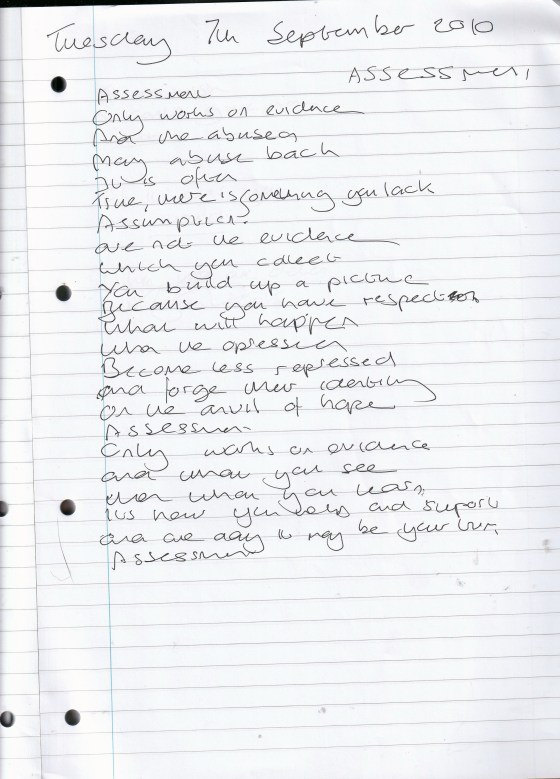 Tuesday 7th September 2010
Assessment
Assessment
Only works on evidence
And the abused
may abuse back
It is often
True, there is something you lack
Assumptions
are not the evidence
which you collect
You build up a picture
Because you have respect
What will happen
when the opressed
Become less repressed
and forge their identity
on the anvil of hope
Assessment
Only works on evidence
and what you see
then what you learn,
its how you help and support
and one day it may be your turn,
Assessment